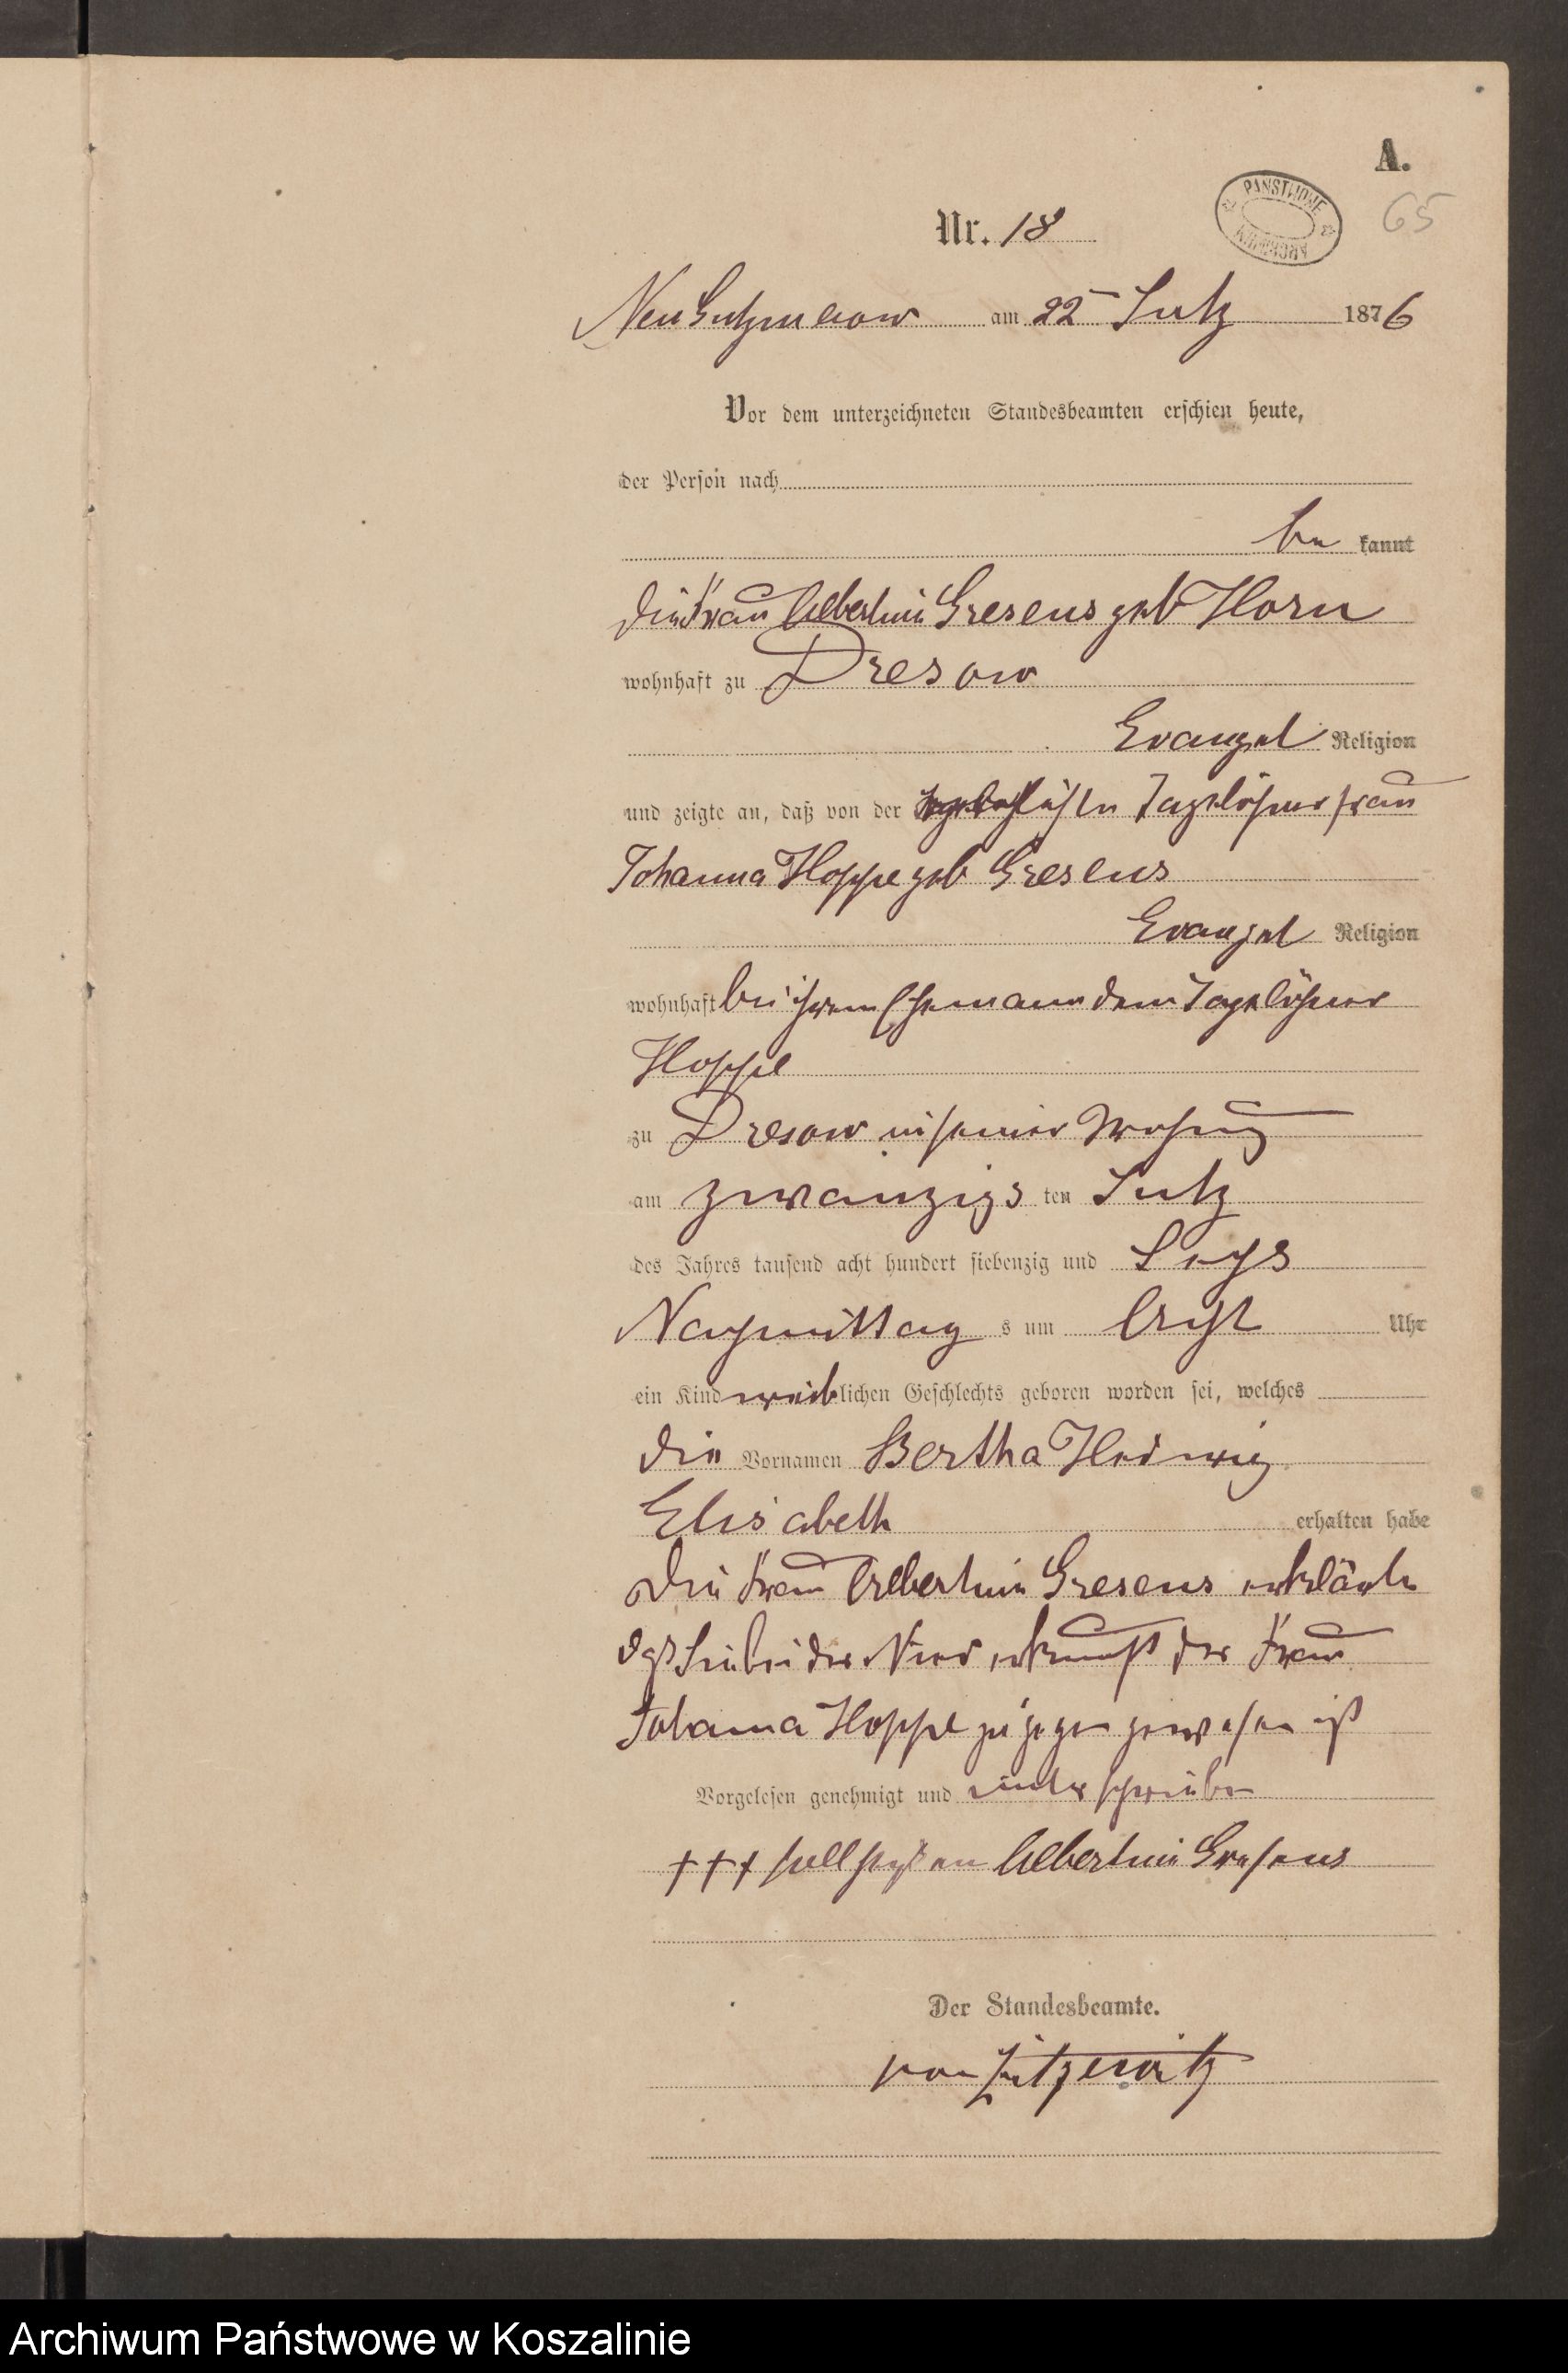 A.
PAŃSTWOWE
ARCHIWUM
65
Nr. 18
Neu Gutzmerow am 22 July 1876
Vor dem unterzeichneten Standesbeamten erschien heute,
der Person nach
be kannt
die Frau Albertine Gresens geb Horn
wohnhaft zu Dresow
Evangel Religion
und zeigte an, daß von der Tagelöhner frau
Johanna Hoppe geb Gresens
Evangel Religion
wohnhaft bei ihrem Ehemann dem Tagelöhner
Hoppe
zu Dresow in seiner Wohnung
am zwanzigs ten July
des Jahres tausend acht hundert siebenzig und Sechs
Nachmittag s um Acht Uhr
ein Kind weiblichen Geschlechts geboren worden sei, welches
die Vornamen Bertha Hedwig
Elisabeth erhalten habe
Die Frau Albertine Gresens erklärte
daß Sie bei der Niederkunft der Frau
Johanna Hoppe zugegen gewesen ist
Vorgelesen genehmigt und unterschrieben
+++ Albertine Gresens
Der Standesbeamte.
von Zitzewitz
Archiwum Państwowe w Koszalinie